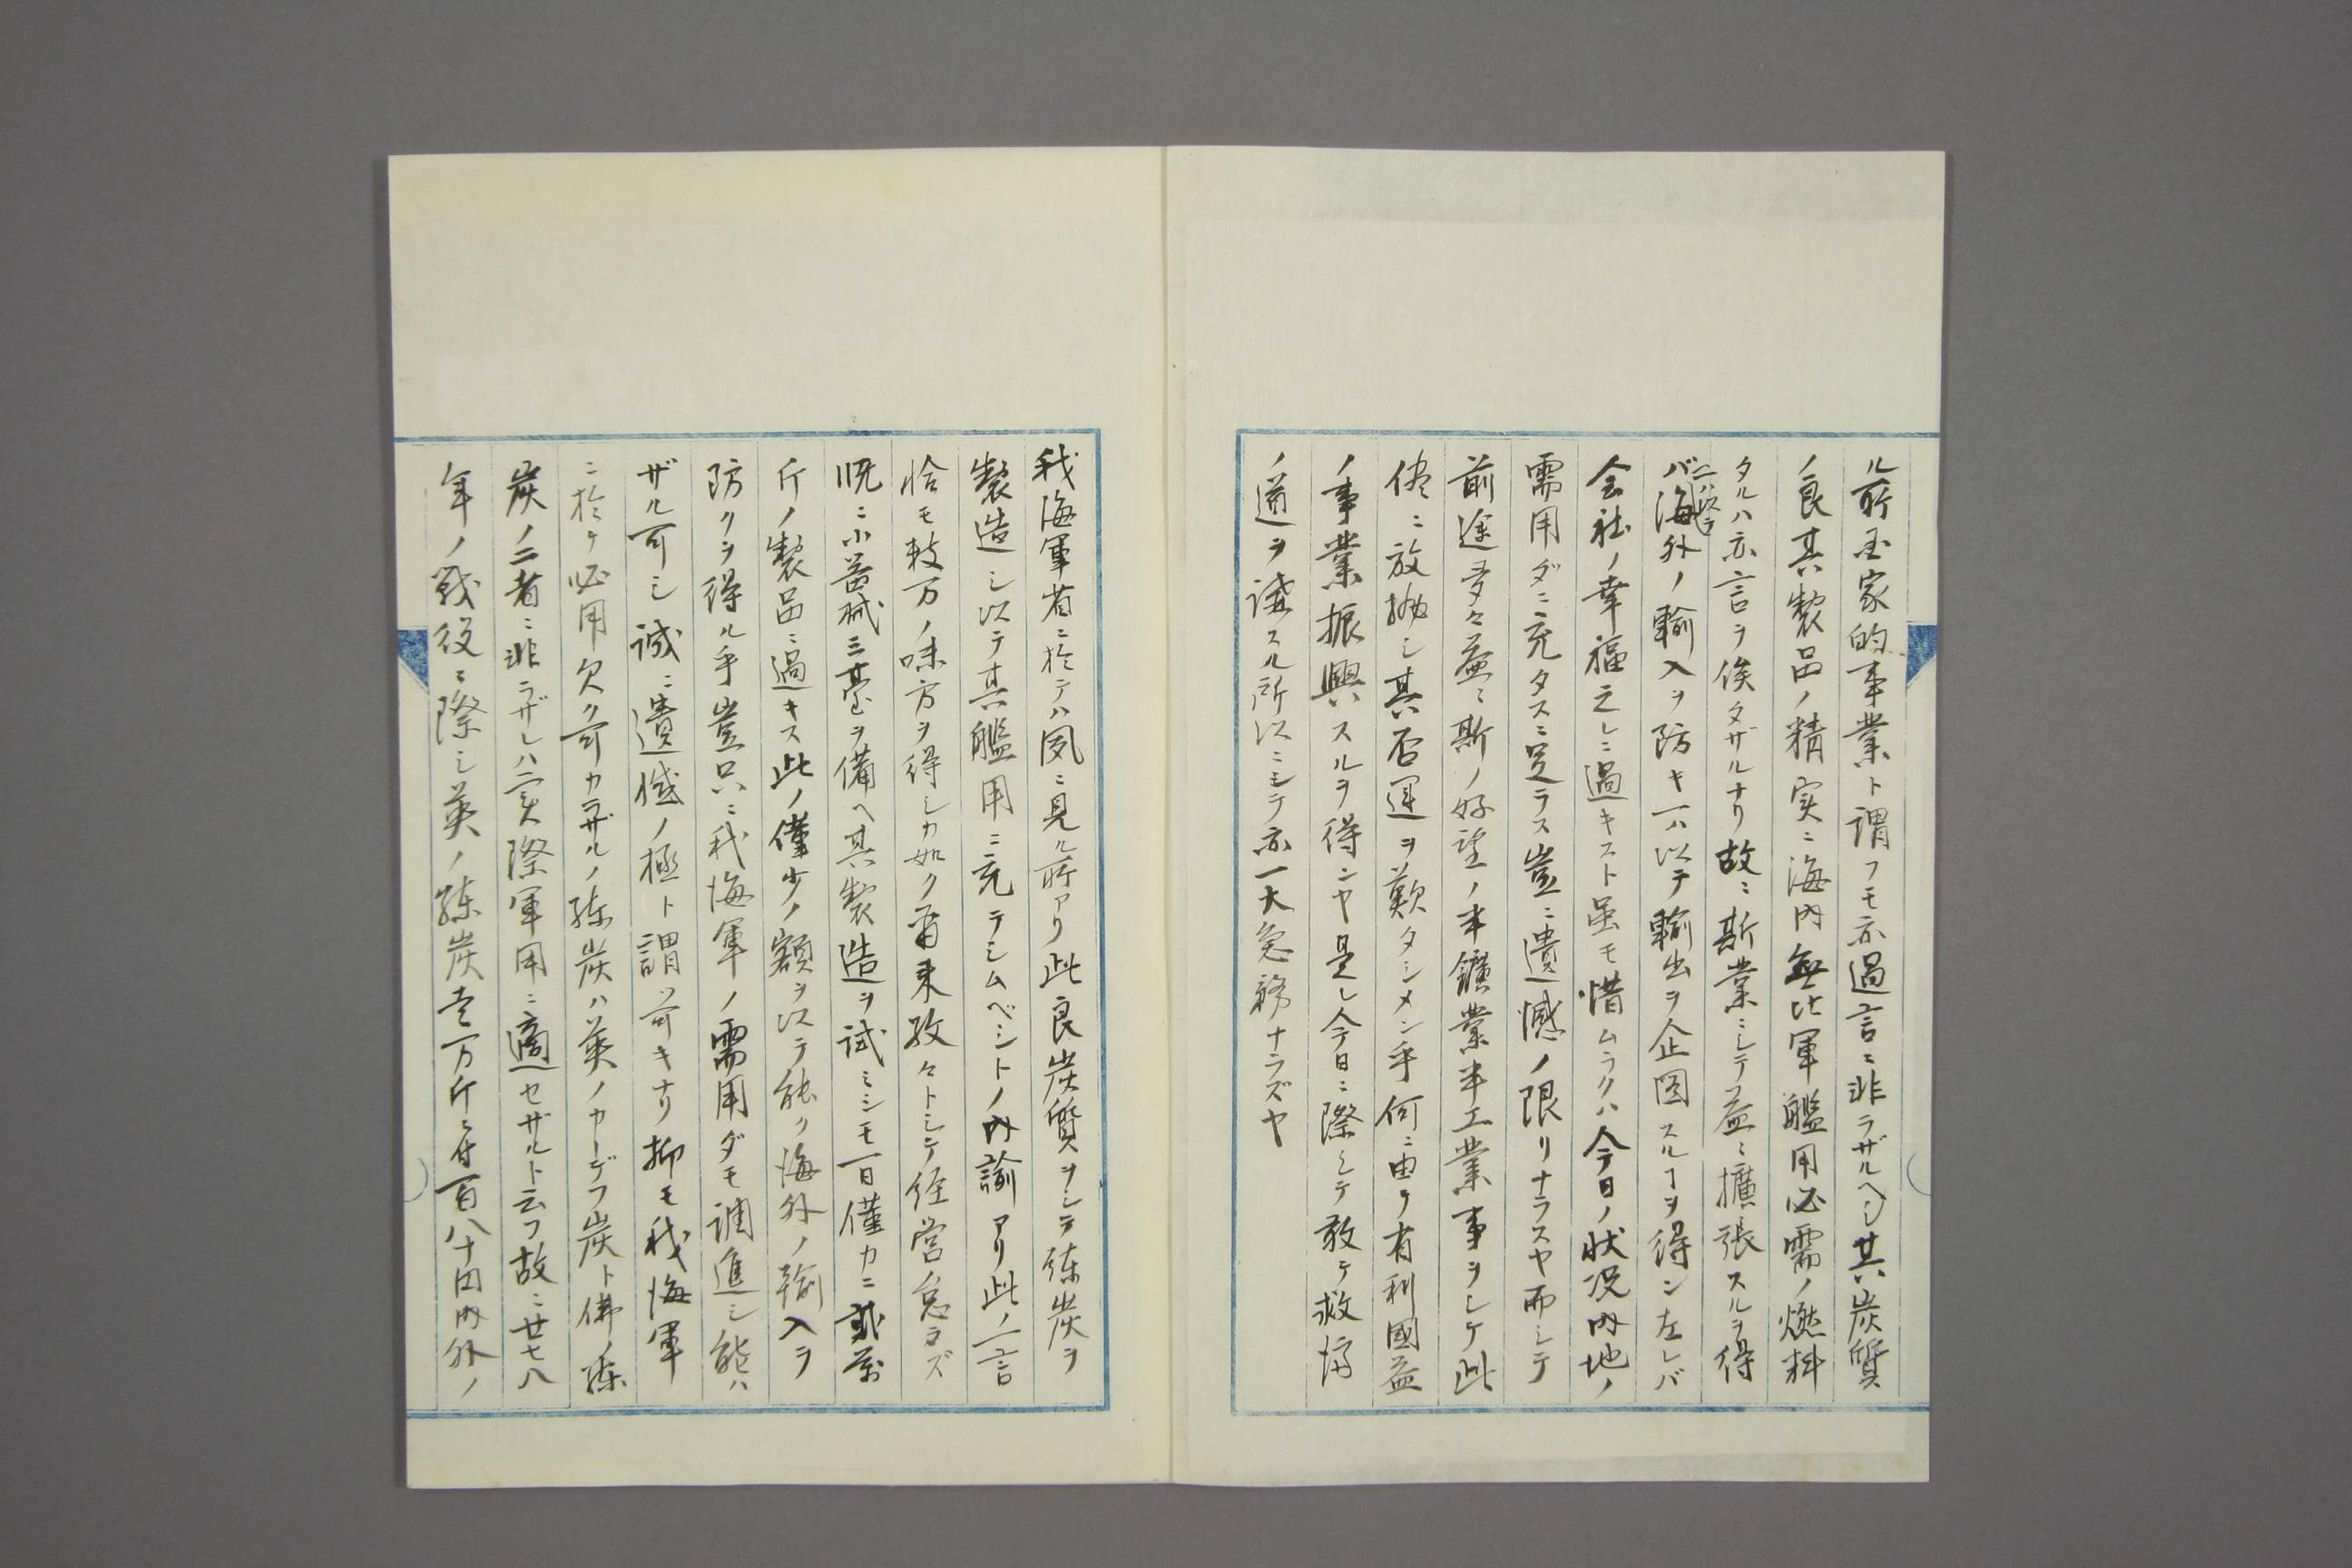 ル所国家的事業ト謂フモ亦過言ニ非ラザルヘシ其炭質
ノ良其製品ノ精実ニ海内無比軍艦用必需ノ燃料
タルハ亦言ヲ俟タザルナリ故ニ斯業ニシテ益々擴張スルヲ得
バ一ハ以テ海外ノ輸入ヲ防キ一ハ以テ輸出ヲ企図スルヿヲ得ン左レバ
会社ノ幸福之レニ過キスト虽モ惜ムラクハ今日ノ状況内地ノ
需用ダニ充タスニ足ラス豈ニ遺憾ノ限リナラスヤ而シテ
前途多々益々斯ノ好望ノ半鑛業半工業事ヲシテ此
儘ニ放抛シ其否運ヲ歎タシメン乎何ニ由テ有利國益
ノ事業振興スルヲ得ンヤ是レ今日ニ際シテ敢テ救済
ノ道ヲ講スル所以ニシテ亦一大急務ナラズヤ
我海軍省ニ於テハ夙ニ見ル所アリ此良炭質ヲシテ練炭ヲ
製造シ以テ其艦用ニ充テシムベシトノ内諭アリ此ノ一言
恰モ数万ノ味方ヲ得シカ如ク爾来孜々トシテ経営怠ラズ
既ニ小器械三基ヲ備ヘ其製造ヲ試ミシモ一日僅カニ貳萬
斤ノ製品ニ過キス此ノ僅少ノ額ヲ以テ能ク海外ノ輸入ヲ
防クヲ得ル乎豈只ニ我海軍ノ需用ダモ調進シ能ハ
ザル可シ誠ニ遺憾ノ極ト謂ツ可キナリ抑モ我海軍
ニ於テ必用欠ク可カラザルノ練炭ハ英ノカーデフ炭ト佛ノ練
炭ノ二者ニ非ラザレハ実際軍用ニ適セザルト云フ故ニ廿七八
年ノ戦役ニ際シ英ノ練炭壱万斤ニ付百八十円内外ノ